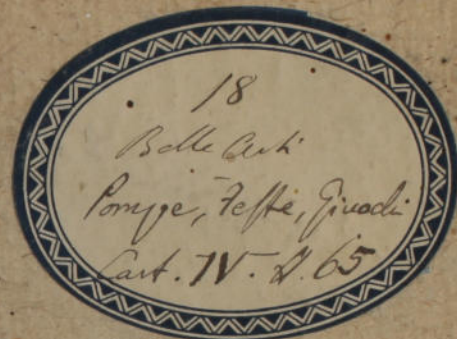 18
Belle Arti
Pompe, Feste, Giuochi
Cart. IV. N. 65